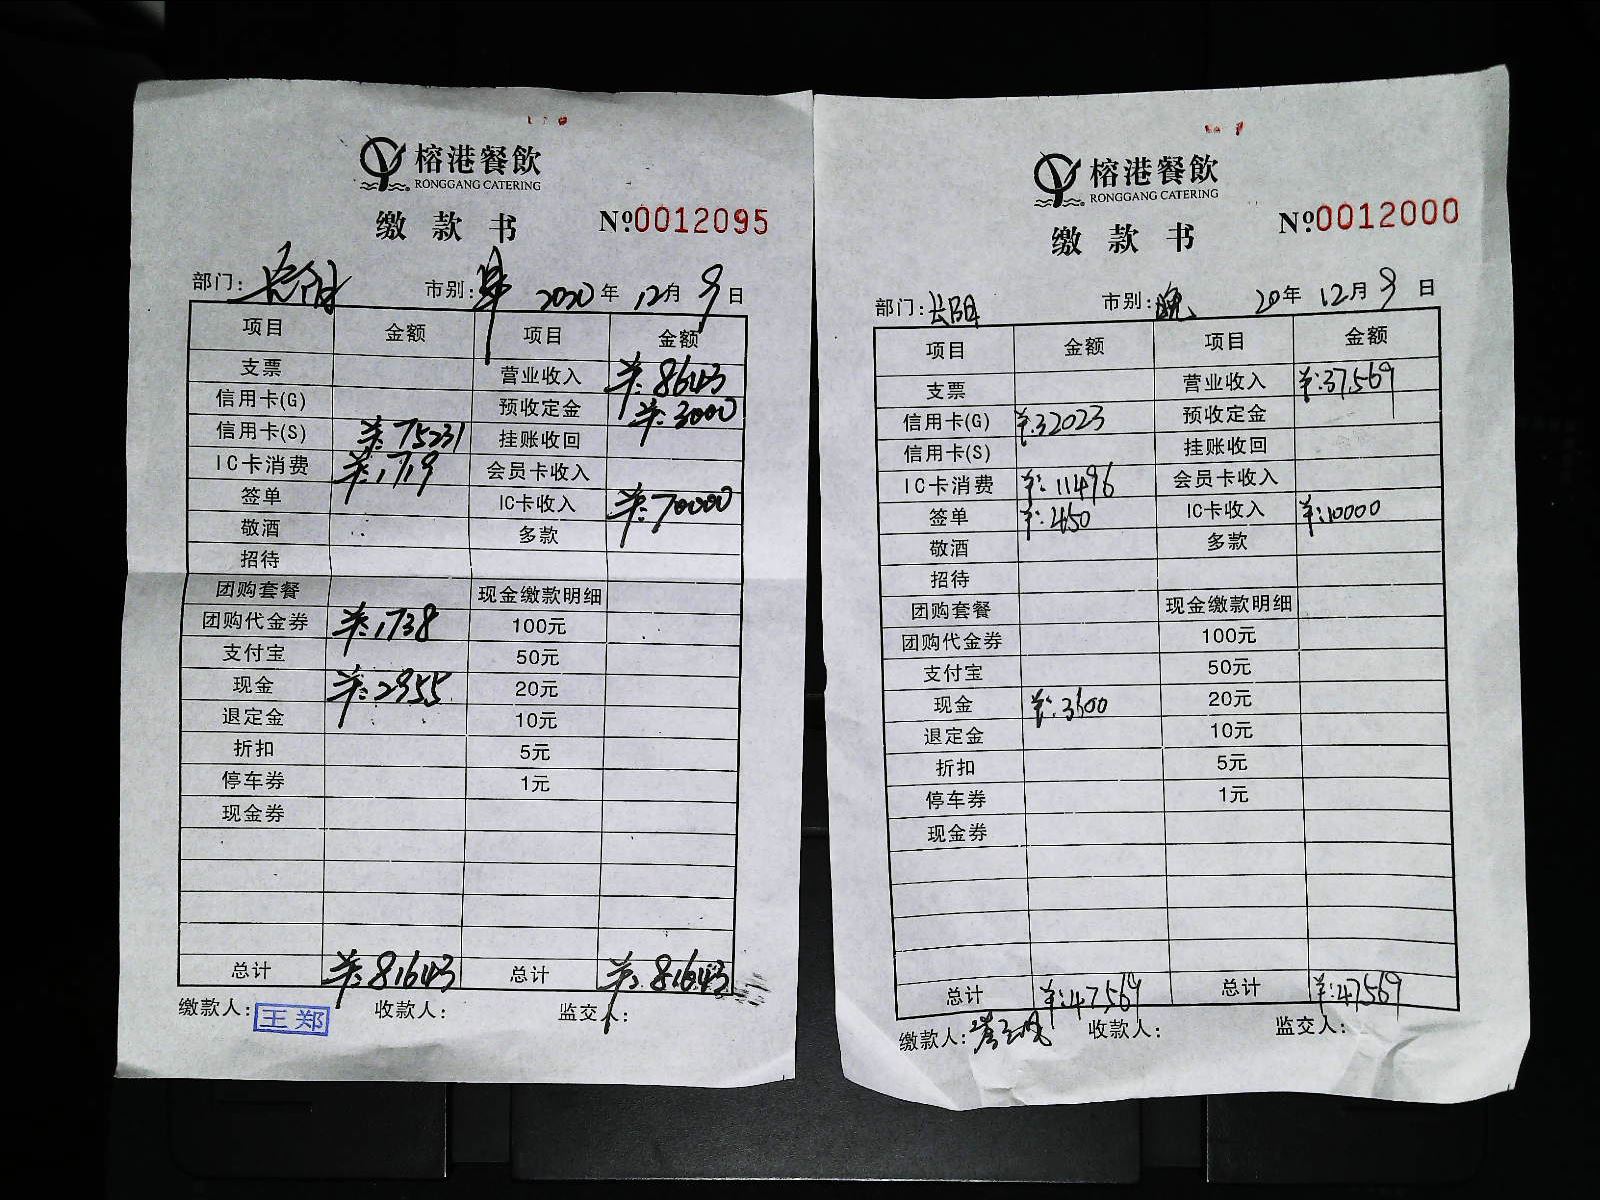 榕港餐飲
RONGGANG CATERING
缴款书 №0012095
部门: 长阳 市别: 早 2020年 12月 9日
项目 金额 项目 金额
支票 营业收入 ¥:8643
信用卡(G) 预收定金 ¥:3000
信用卡(S) ¥:75231 挂账收回
IC卡消费 ¥:1719 会员卡收入
签单 IC卡收入 ¥:70000
敬酒 多款
招待
团购套餐 现金缴款明细
团购代金券 ¥:1738 100元
支付宝 50元
现金 ¥:2955 20元
退定金 10元
折扣 5元
停车券 1元
现金券
总计 ¥:81643 总计 ¥:81643
缴款人: 王郑 收款人: 监交人:
榕港餐飲
RONGGANG CATERING
缴款书 №0012000
部门: 长阳 市别: 晚 20年 12月 9日
项目 金额 项目 金额
支票 营业收入 ¥:37569
信用卡(G) ¥:32023 预收定金
信用卡(S) 挂账收回
IC卡消费 ¥:11496 会员卡收入
签单 ¥:450 IC卡收入 ¥:10000
敬酒 多款
招待
团购套餐 现金缴款明细
团购代金券 100元
支付宝 50元
现金 ¥:3600 20元
退定金 10元
折扣 5元
停车券 1元
现金券
总计 ¥:47569 总计 ¥:47569
缴款人: 收款人: 监交人: